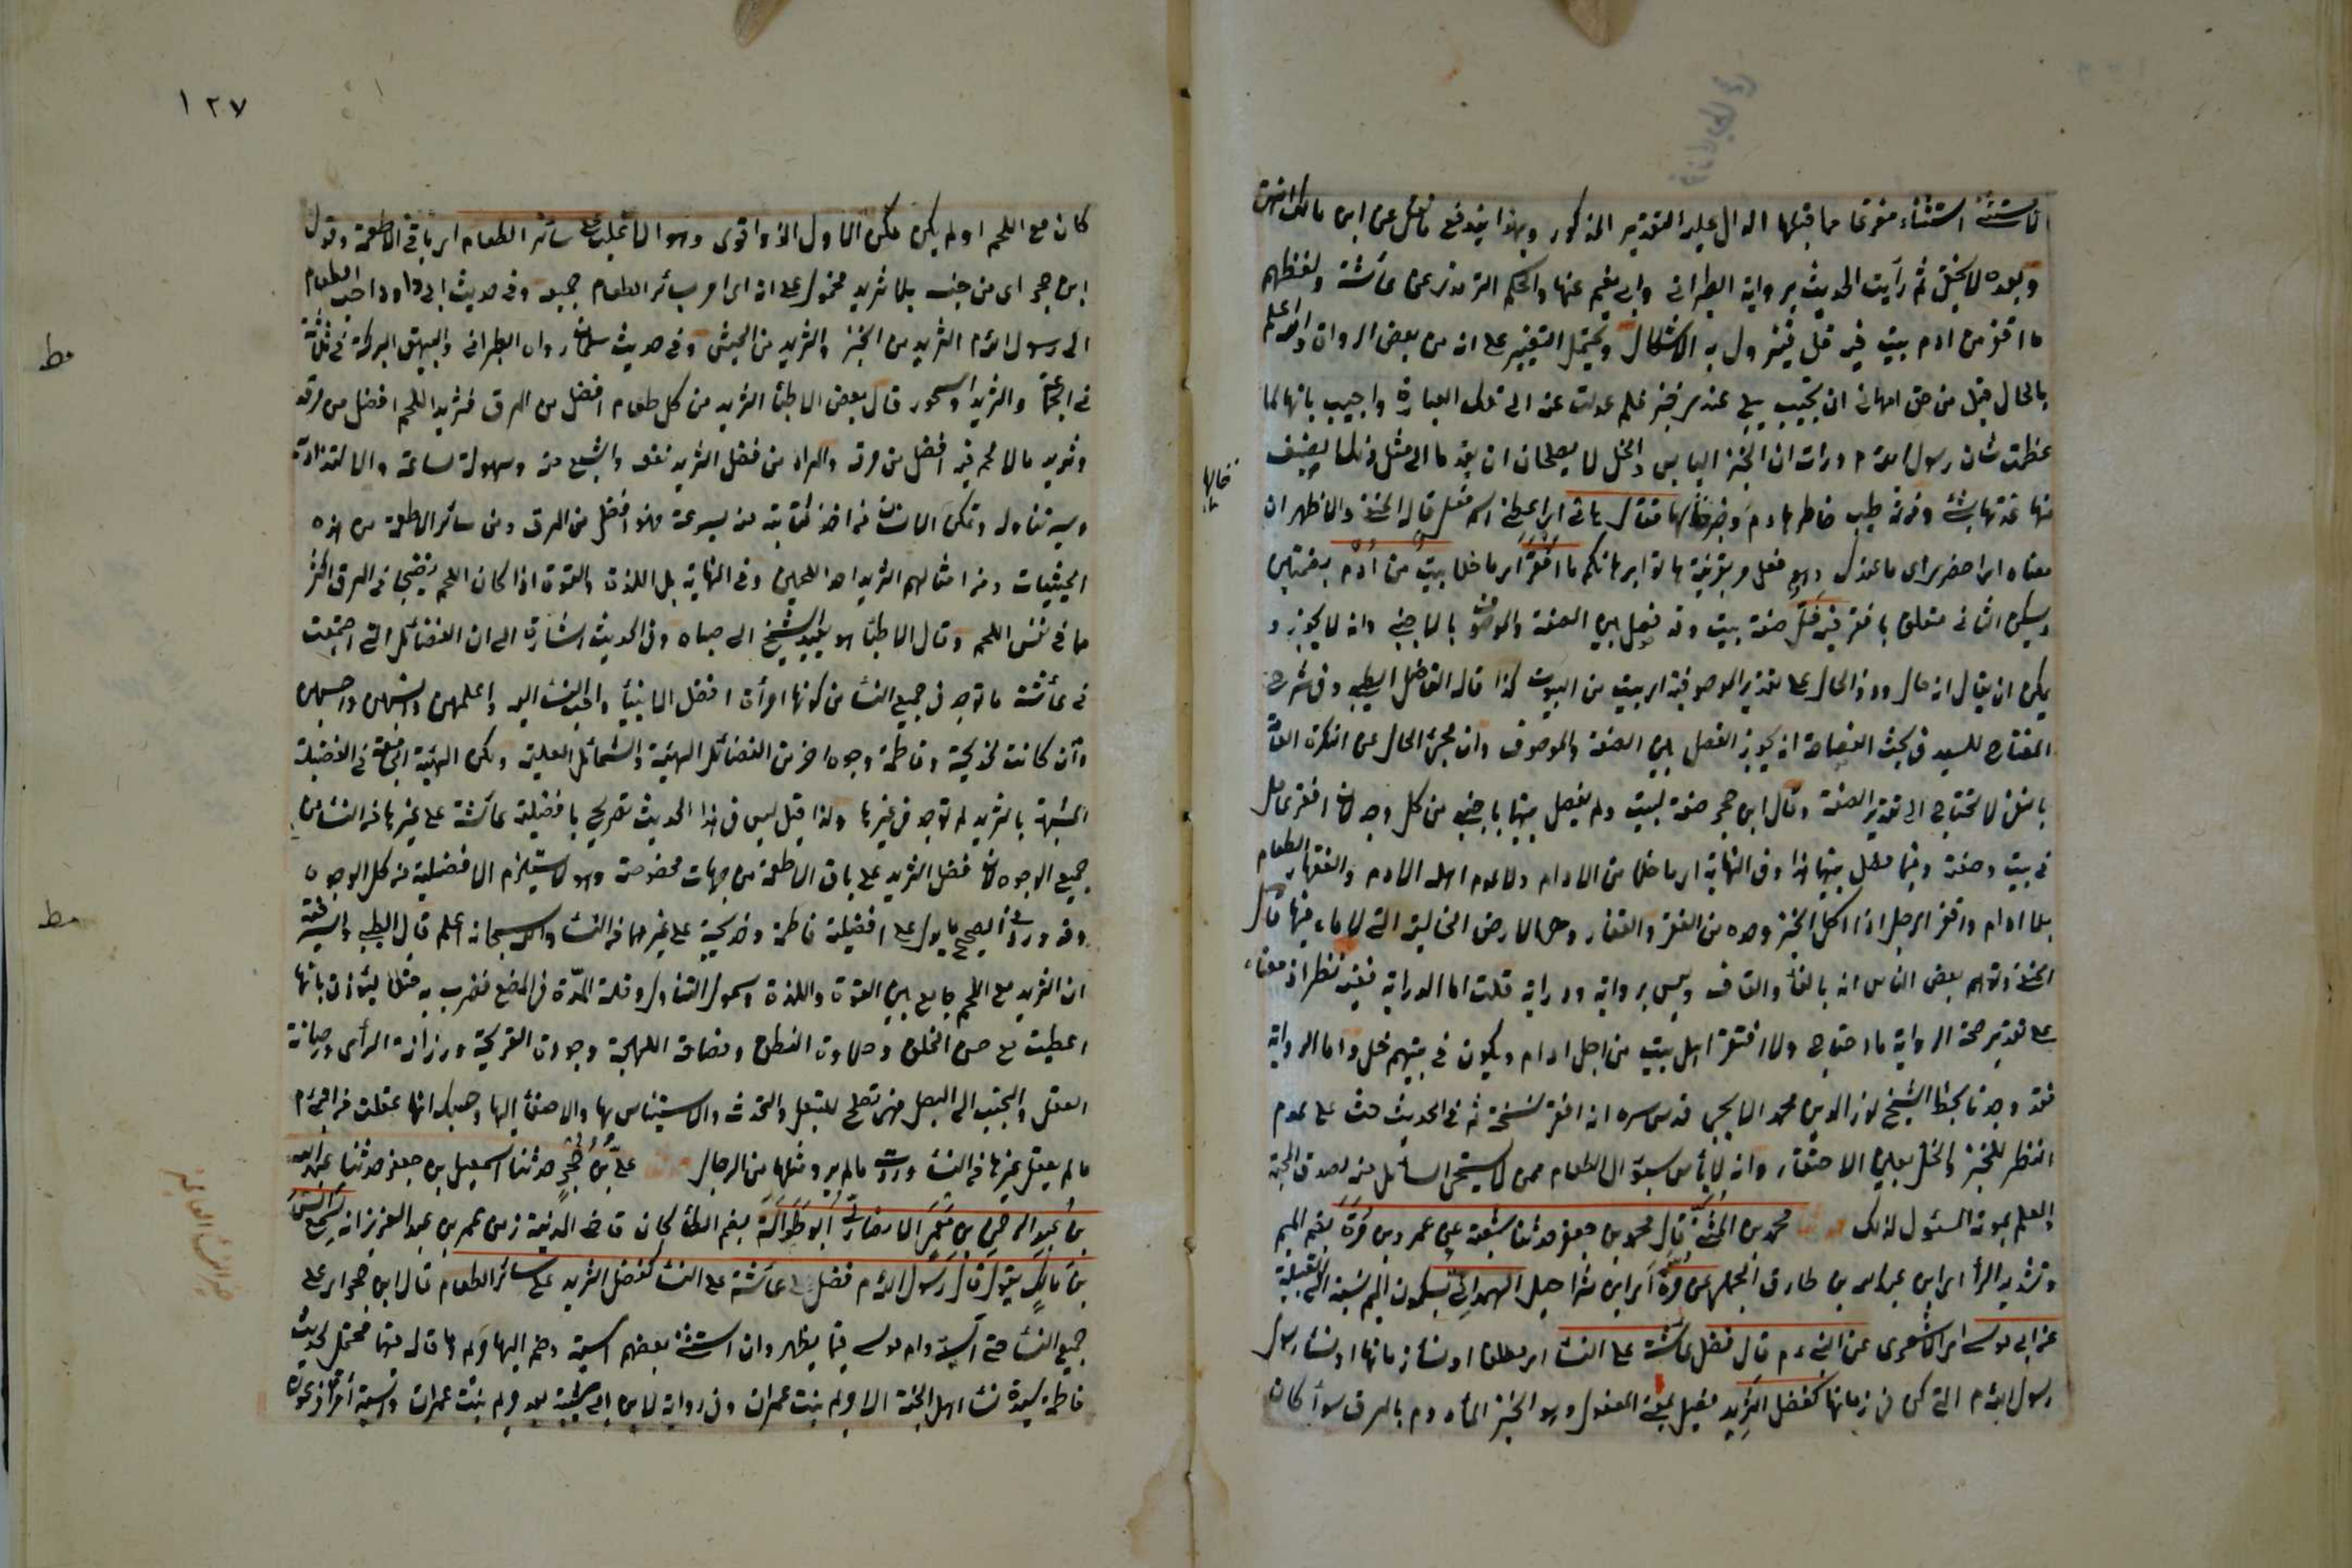 الاستثناء استثناء مفرغا مما قبلها الدال عليه التقدير المذكور وبهذا يندفع ما نقل عن ابن مالك انتهى
وبعده لا يخفى ثم رأيت الحديث برواية الطبراني وابي نعيم عنها والحكيم الترمذي عن عائشة ولفظهم
ما اقفر من ادم بيت فيه خل فيزول به الاشكال ويحتمل التغيير على انه من بعض الرواة والله اعلم
بالحال قيل من حق ام هانئ ان تجيب ببلى عندي خبز فلم عدلت عنه الى تلك العبارة واجيب بانها لما
عظمت شان رسول الله م ورات ان الخبز اليابس والخل لا يصلحان ان يقدما الى مثل ذلك الضيف
فقال هاتي اي اعطي اسم فعل قاله الحنفي والاظهر ان
معناه اي احضري اي ما عندك وهو فعل امر بقرينة هاتوا برهانكم ما اقفر اي ما خلا بيت من ادم بضمتين
ويسكن الثاني متعلق باقفر فيه خل صفة بيت وقد فصل بين الصفة والموصوف بالاجنبي وانه لا يجوز و
يمكن ان يقال انه حال وذو الحال على تقدير الموصوفية اي بيت من البيوت كذا قاله الفاضل الطيبي وفي شرح
المفتاح للسيد في بحث الفصاحة انه يجوز الفصل بين الصفة والموصوف وان مجئ الحال عن النكرة العامة
بالنفي لا يحتاج الى تقدير الصفة وقال ابن حجر صفة لبيت ولم يفصل بينهما باجنبي من كل وجه لان اقفر عامل
في بيت وصفته وفيما فصل بينهما هذا وفي النهاية اي ما خلا من الادام ولا عدم اهله الادم والقفار الطعام
بلا ادام واقفر الرجل اذا اكل الخبز وحده من القفر والقفار وهي الارض الخالية التي لا ماء فيها قال
الحنفي وتوهم بعض الناس انه بالفاء والقاف وليس برواية ودراية قلت اما الدراية ففيه نظر اذ معناه
على تقدير صحة الرواية ما احتاج ولا افتقر اهل بيت من اجل ادام ويكون في بيتهم خل واما الرواية
فقد وجدنا بخط الشيخ نور الدين محمد الايجي قدس سره انه افقر نسخة ثم في الحديث حث على عدم
النظر للخبز والخل بعين الاحتقار وانه لا بأس بسؤال الطعام ممن لا يستحي السائل منه لصدق المحبة
والعلم بمودة المسئول لذلك حدثنا محمد بن المثنى قال محمد بن جعفر حدثنا شعبة عن عمرو بن مرة بضم الميم
وتشديد الراء اي ابن عبد الله بن طارق الجملي عن مرة اي ابن شراحيل الهمداني بسكون الميم نسبة الى القبيلة
عن ابي موسى اي الاشعري عن النبي م قال فضل عائشة على النساء اي مطلقا او نساء زمانها او نساء رسول
رسول الله م التي كن في زمانها كفضل الثريد فعيل بمعنى المفعول وهو الخبز المأدوم بالمرق سواء كان
١٢٧
كان مع اللحم او لم يكن لكن الاول الذ واقوى وهو الاغلب على سائر الطعام اي باقي الاطعمة وقول
ابن حجر اي من جنسه بلا ثريد محمول على انه اي امر سائر الطعام جميعه وفي حديث ابي داود احب الطعام
الى رسول الله م الثريد من الخبز والثريد من الحيس وفي حديث سلمان رواه الطبراني والبيهقي البركة في ثلثة
في الجماعة والثريد والسحور قال بعض الاطباء الثريد من كل طعام افضل من المرق فثريد اللحم افضل من مرقه
وثريد ما لا لحم فيه افضل من مرقه والمراد من فضل الثريد نفعه والشبع منه وسهولة مساغه والالتذاذ به
ويسر تناوله وتمكن الانسان من اخذ كفايته منه بسرعة فهو افضل من المرق ومن سائر الاطعمة من هذه
الحيثيات ومن امثالهم الثريد احد اللحمين وفي النهاية بل اللذة والقوة اذا كان اللحم نضيجا في المرق اكثر
مما في نفس اللحم وقال الاطباء هو يعيد الشيخ الى صباه وفي الحديث اشارة الى ان الفضائل التي اجتمعت
في عائشة ما توجد في جميع النساء من كونها امرأة افضل الانبياء واحب النساء اليه واعلمهن وانسبهن واحسبهن
وان كانت لخديجة وفاطمة وجوه اخر من الفضائل البهية والشمائل العلية ولكن الهيئة الجامعة في الفضيلة
المشبهة بالثريد لم توجد في غيرها ولذا قيل ليس في هذا الحديث تصريح بافضلية عائشة على غيرها من النساء من
جميع الوجوه لان فضل الثريد على باقي الاطعمة من جهات مخصوصة وهو لا يستلزم الافضلية من كل الوجوه
وقد ورد في الصحيح ما يدل على افضلية فاطمة وخديجة على غيرهما من النساء والله سبحانه اعلم قال الطيبي والسر فيه
ان الثريد مع اللحم جامع بين القوة واللذة وسهولة التناول وقلة المدة في المضغ فضرب به مثلا ليؤذن بانها
اعطيت مع حسن الخلق وحلاوة النطق وفصاحة اللهجة وجودة القريحة ورزانة الرأي ورصانة
العقل والتحبب الى البعل فهي تصلح للتبعل والتحدث والاستيناس بها والاصغاء اليها وحسبك انها عقلت من النبي م
ما لم يعقل غيرها من النساء وروت ما لم يرو مثلها من الرجال حدثنا علي بن حجر حدثنا اسمعيل بن جعفر حدثنا عبد الله
بن عبد الرحمن بن معمر الانصاري ابو طوالة بضم الطاء كان قاضي المدينة زمن عمر بن عبد العزيز انه سمع انس
بن مالك يقول قال رسول الله م فضل عائشة على النساء كفضل الثريد على سائر الطعام قال ابن حجر اي على
جميع النساء حتى آسية وام موسى فيما يظهر وان استثنى بعضهم آسية وضم اليها مريم وما قاله فيهما محتمل لحديث
فاطمة سيدة نساء اهل الجنة الا مريم بنت عمران وفي رواية لابن ابي شيبة بعد مريم بنت عمران وآسية امرأة فرعون